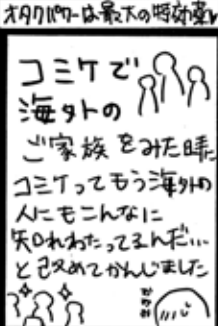 オタクパワーは最大の特効薬
コミケで
海外の
ご家族をみた時に
コミケってもう海外の
人にもこんなに
知れわたってるんだ…
と改めてかんじました